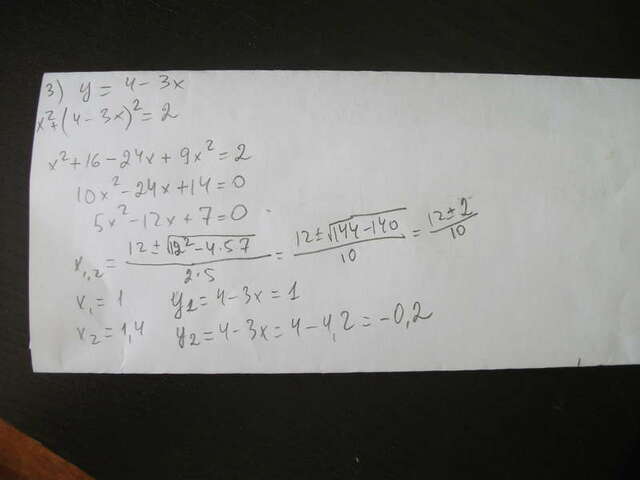 3) y = 4 - 3x
x²+(4 - 3x)² = 2
x² + 16 - 24x + 9x² = 2
10x² - 24x + 14 = 0
5x² - 12x + 7 = 0
x₁,₂ = (12 ± √(12² - 4·5·7))/(2·5) = (12 ± √(144 - 140))/10 = (12 ± 2)/10
x₁ = 1 y₁ = 4 - 3x = 1
x₂ = 1,4 y₂ = 4 - 3x = 4 - 4,2 = -0,2